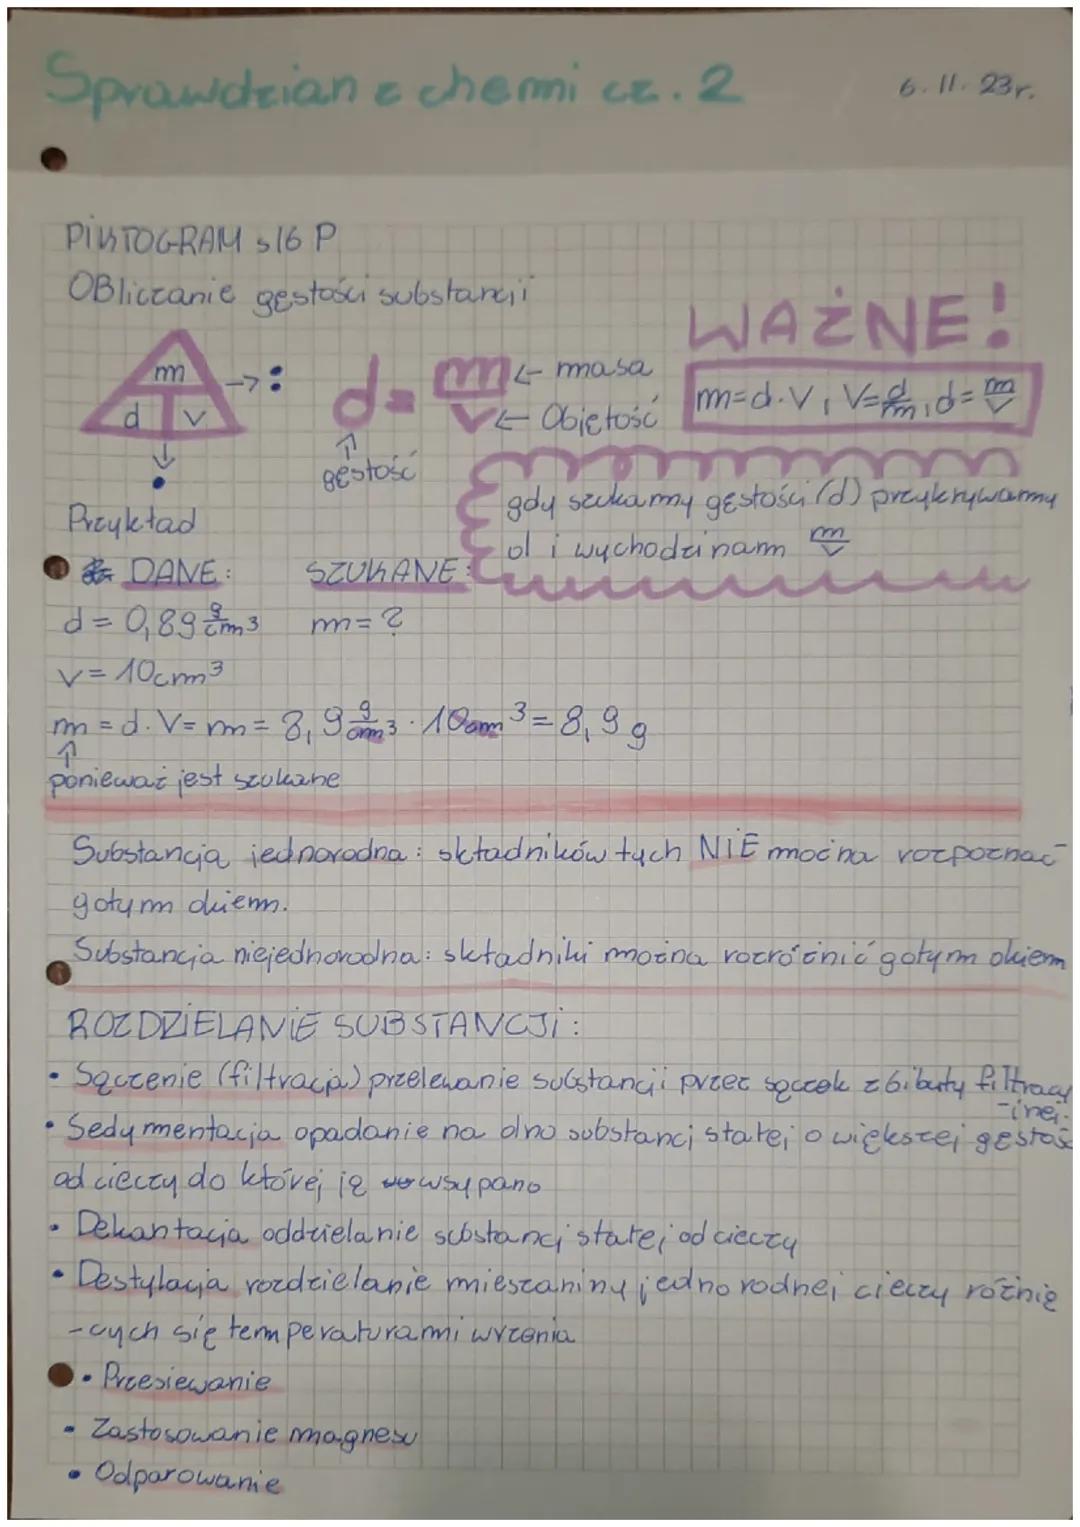 Sprawdzian z chemi cz. 2
6.11.23r.
PIKTOGRAM s16 P
OBliczanie gęstości substancji
WAŻNE!
m
d V
→ :
↓
•
d = m/V
← masa
← Objętość
↑
gęstość
m=d·V, V=d/m, d=m/V
gdy szukamy gęstości (d) przykrywamy
d i wychodzi nam m/V
Przykład
DANE: SZUKANE:
d = 0,89 g/cm³ m = ?
V = 10cm³
m = d·V = m = 8,9 g/cm³ · 10cm³ = 8,9 g
↑
ponieważ jest szukane
Substancja jednorodna: składników tych NIE można rozpoznać
gołym okiem.
Substancja niejednorodna: składniki można rozróżnić gołym okiem
ROZDZIELANIE SUBSTANCJI:
• Sączenie (filtracja) przelewanie substancji przez sączek z bibuły filtracy
-jnej.
• Sedymentacja opadanie na dno substancj stałej o większej gęstość
od cieczy do której ją wsypano
• Dekantacja oddzielanie substancj stałej od cieczy
• Destylacja rozdzielanie mieszaniny jednorodnej cieczy różnią
-cych się temperaturami wrzenia
• Przesiewanie
• Zastosowanie magnesu
• Odparowanie